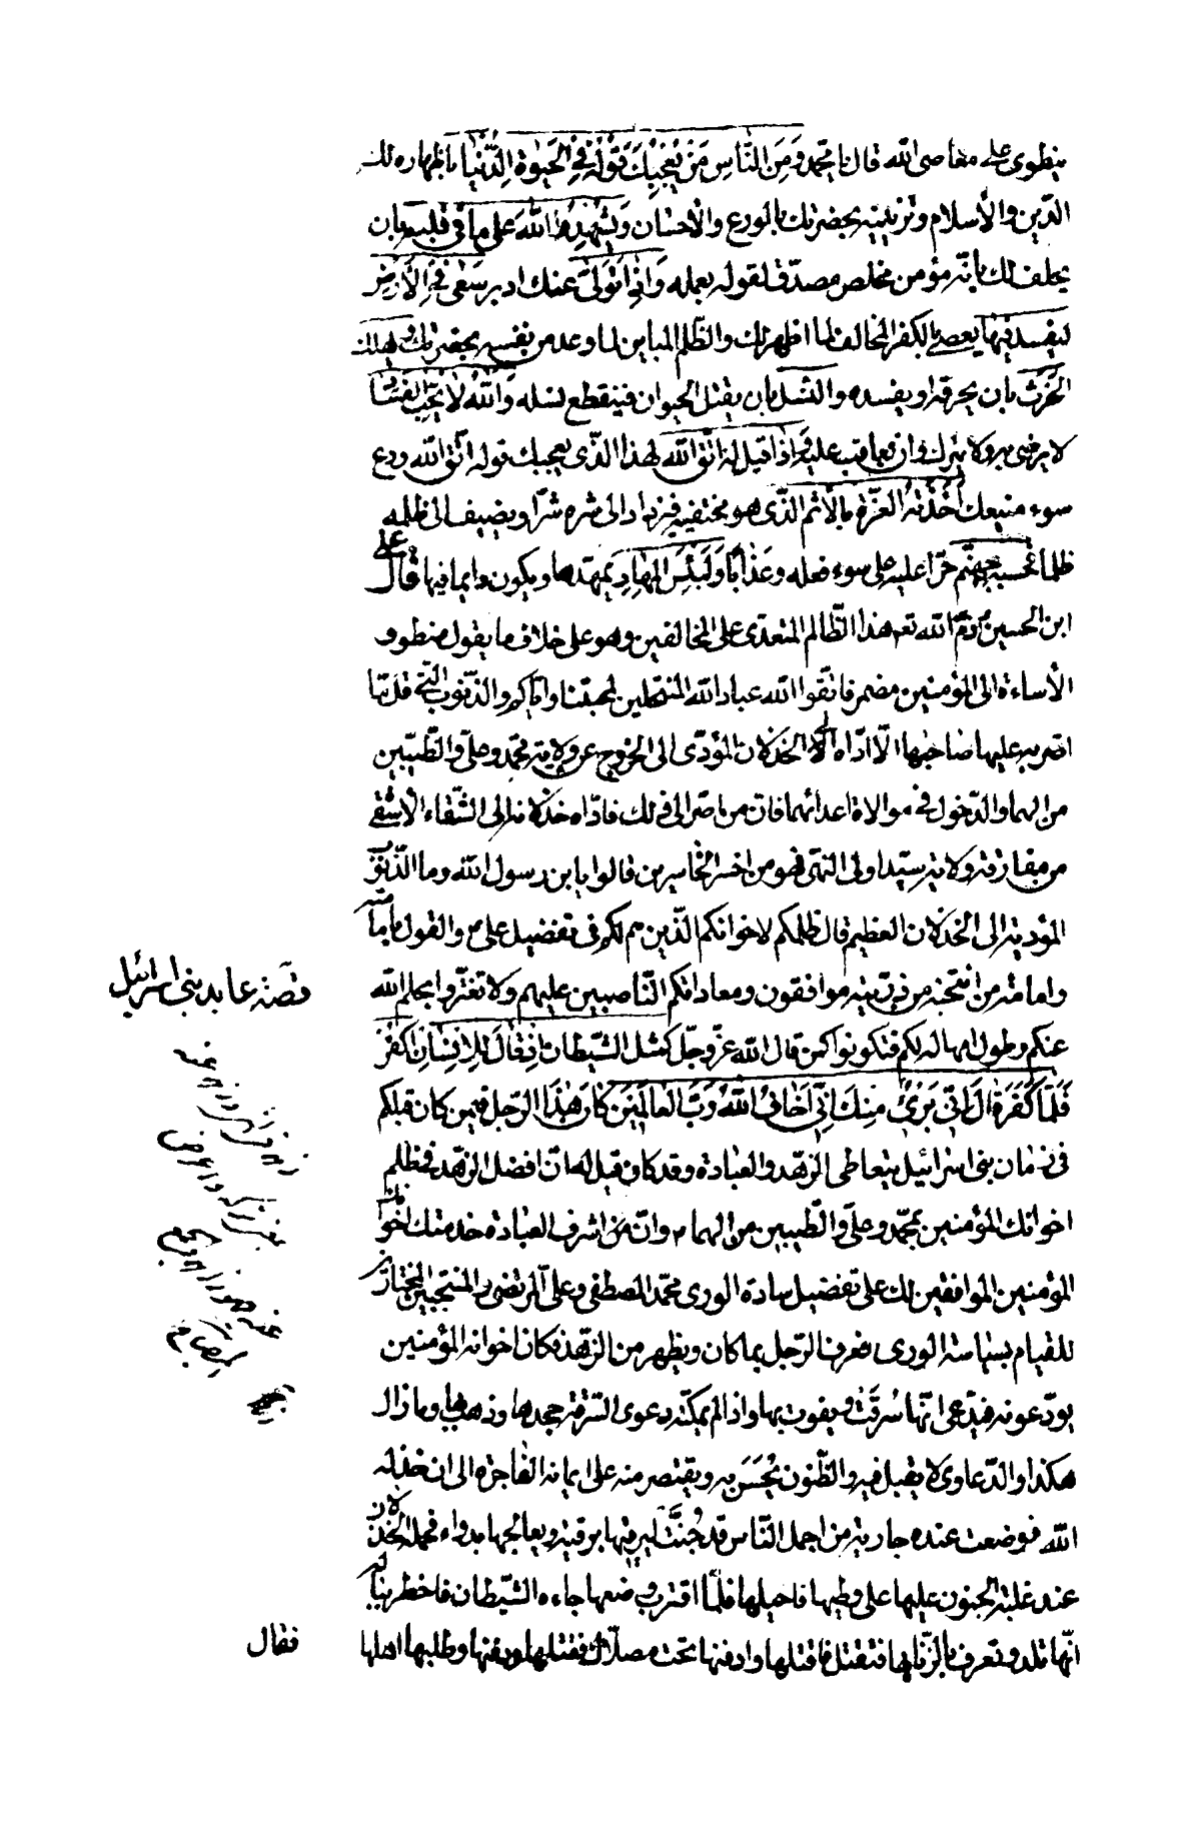 ينطوى على معاصى الله قال يا محمد وَمِنَ النَّاسِ مَنْ يُعْجِبُكَ قَوْلُهُ فِى الْحَيٰوةِ الدُّنْيا باظهاره لك
الدّين والأسلام وتزيينه بحضرتك بالورع والأحسان وَيُشْهِدُ اللهَ عَلى ما فى قَلْبِه بان
يحلف لك بانّه مؤمن مخلص مصدّق لقوله بعمله وَاِذا تَوَلّىٰ عنك ادبر سَعٰى فِى الْاَرْضِ
لِيُفْسِدَ فِيها يعصى بالكفر المخالف لما اظهر لك والظّلم المباين لما وعد من نفسه بحضرتك و يهلك
الحَرْثَ بان يحرقه او يفسده والنَّسْلَ بان يقتل الحيوان فينقطع نسله وَاللهُ لا يُحِبُّ الفَسادَ
لا يرضى به ولا يترك ان يعاقب عليه وَاِذا قيلَ لَهُ اتَّقِ الله لهذا الّذى يعجبك قوله اتّق الله ودع
سوء صنيعك اَخَذَتْهُ العِزَّةُ بِالْاِثْمِ الّذى هو محتقبه فيزداد الى شره شرّا ويضيف الى ظلمه
ظلما فَحَسْبُهُ جَهَنَّمُ جزا عليه على سوء فعله وعذابا وَلَبِئْسَ المِهادُ يمهّدها ويكون دايما فيها قال على
ابن الحسين ذمّ الله تعم هذا الظّالم المتعدّى على المخالفين وهو على خلاف ما يقول منطوو
الأساءة الى المؤمنين مضمر فاتّقوا الله عباد الله المنتحلين لمحبتنا وايّاكم والذّنوب الّتى قلّ ما
اصر عليها صاحبها الّا ادّاه الى الخذلان المؤدّى الى الخروج عن ولاية محمّد وعلى والطّيبين
من الهما والدّخول فى موالاة اعدائهما فان من اصرّ الى ذلك فادّاه خذلانه الى الشّقاء الاشقى
من مفارقة ولاية سيّد اولى النهى فهو من اخسر الخاسرين قالوا يابن رسول الله وما الذّنوب
المؤدية الى الخذلان العظيم قال ظلمكم لاخوانكم الّذين هم لكم فى تفضيل على م والقول بامامته
وامامته من انتجبه من ذرّيته موافقون ومعاداتكم النّاصبين عليهم ولا تغترّوا بحلم الله
عنكم وطول امهاله لكم فتكونوا كمن قال الله عزّ وجلّ كَمَثَلِ الشّيطانِ اِذْ قالَ لِلْاِنْسانِ اكْفُرْ
فَلَمّا كَفَرَ قالَ اِنّى بَرِىءٌ مِنْكَ اِنّى اَخافُ اللهَ رَبَّ العالَمينَ كان هذا الرّجل فيمن كان قبلكم
فى زمان بنى اسرائيل يتعاطى الزّهد والعبادة وقد كان قيل له ان افضل الزّهد فى ظلم
اخوانك المؤمنين بمحمّد وعلى والطّيبين من الهما م وانّ من اشرف العبادة خدمتك اخوانك
المؤمنين الموافقين لك على تفضيل سادة الورى محمّد المصطفى وعلى المرتضى والمنتجبين المختارين
للقيام بسياسة الورى فعرف الرّجل بما كان ويظهر من الزّهد فكان اخوانه المؤمنين
يودعونه فيدّعى انّها سُرِقَت ويفوت بها واذا لم يمكنه دعوى السّرقة جحدها وذهب بها وما زال
هكذا والدّعاوى لا يقبل فيه والظّنون يُحْسَن به ويقتصر منه على ايمانه الفاجرة الى ان خذله
الله فوضعت عنده جارية من اجمل النّاس قد جُنَّت ليرقيها برقية ويعالجها بدواء فحمله الخذلان
عند غلبة الجنون عليها على وطيها فاحبلها فلمّا اقترب وضعها جاءه الشّيطان فاخطر بباله
انّها تلد وتعرف بالزّنا بها فتقتل فاقتلها وادفنها تحت مصلّاك فقتلها ودفنها وطلبها اهلها
قصّة عابد بنى اسرائيل
فقال